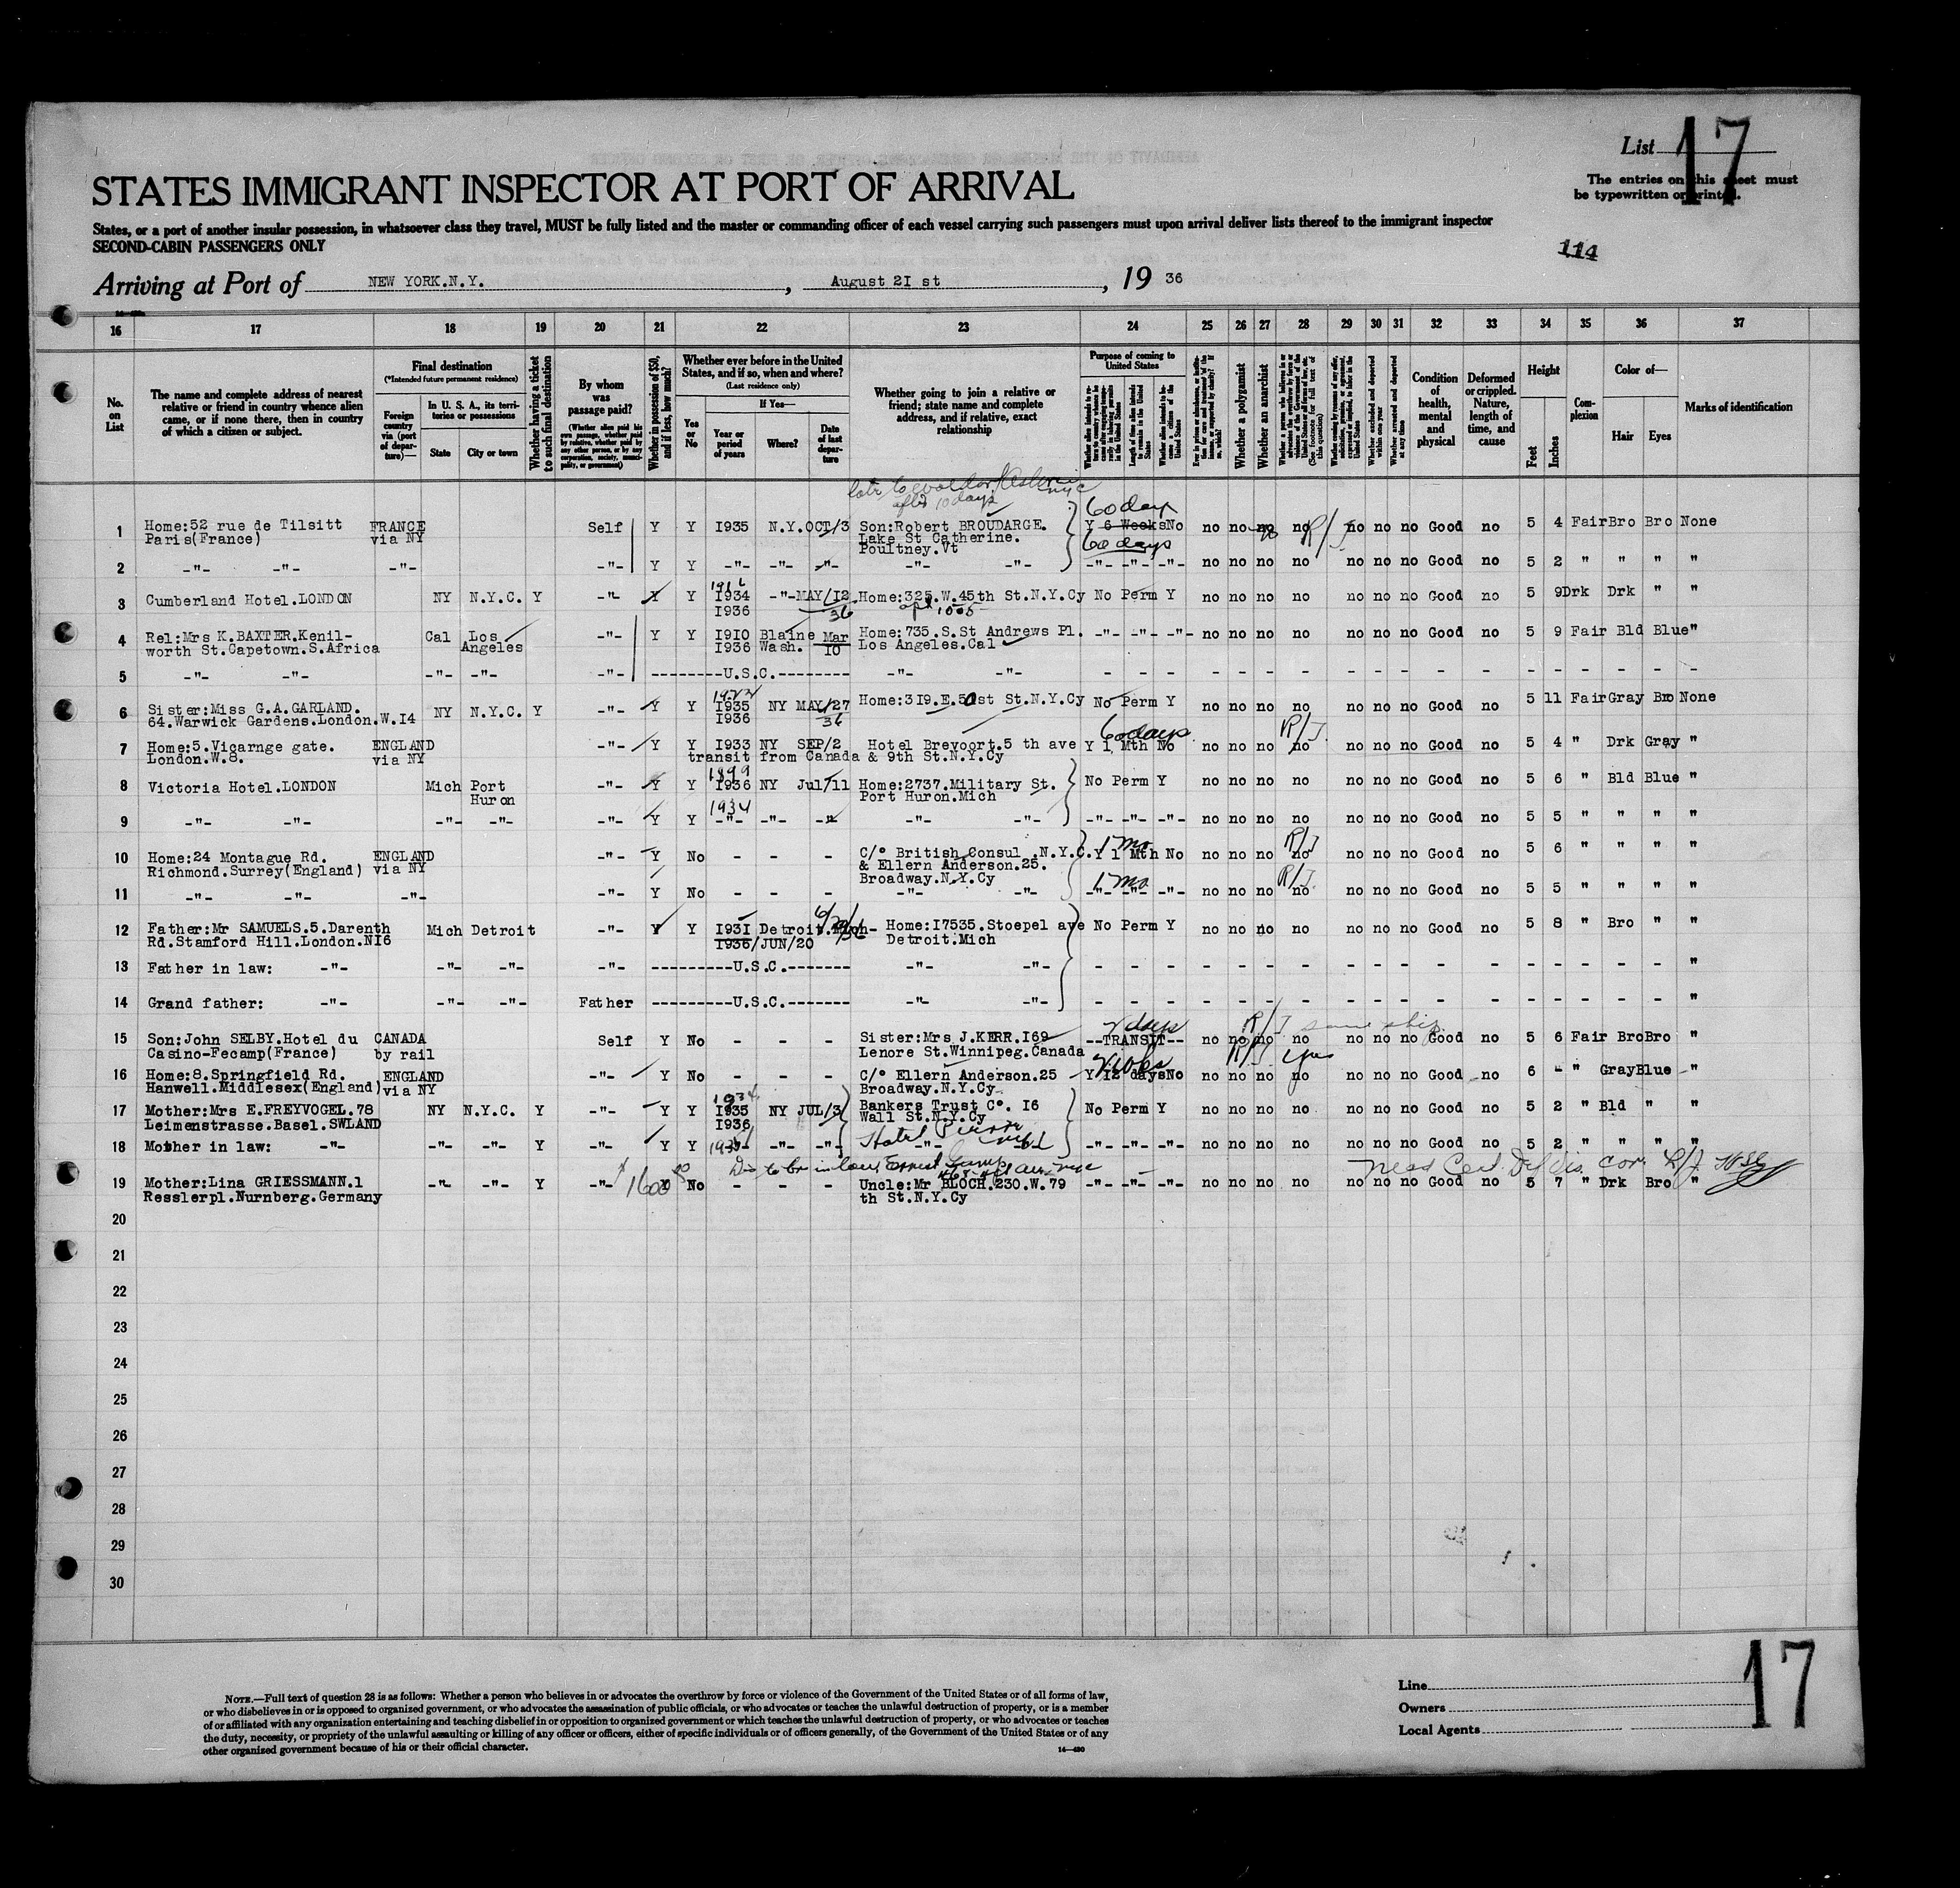 List 17
The entries on this sheet must
be typewritten or printed.
STATES IMMIGRANT INSPECTOR AT PORT OF ARRIVAL
States, or a port of another insular possession, in whatsoever class they travel, MUST be fully listed and the master or commanding officer of each vessel carrying such passengers must upon arrival deliver lists thereof to the immigrant inspector
SECOND-CABIN PASSENGERS ONLY
114
Arriving at Port of NEW YORK.N.Y. , August 2I st , 19 36
16 17 18 19 20 21 22 23 24 25 26 27 28 29 30 31 32 33 34 35 36 37
No. on List
The name and complete address of nearest relative or friend in country whence alien came, or if none there, then in country of which a citizen or subject.
Final destination
(*Intended future permanent residence)
Foreign country via (port of departure)—
In U. S. A., its territories or possessions
State
City or town
Whether having a ticket to such final destination
By whom was passage paid?
(Whether alien paid his own passage, whether paid by relative, whether paid by any other person, or by any corporation, society, municipality, or government)
Whether in possession of $50, and if less, how much?
Whether ever before in the United States, and if so, when and where?
(Last residence only)
Yes or No
If Yes—
Year or period of years
Where?
Date of last departure
Whether going to join a relative or friend; state name and complete address, and if relative, exact relationship
Purpose of coming to United States
Whether a polygamist
Whether an anarchist
(See footnote for full text of this question)
Whether excluded and deported within one year
Whether arrested and deported at any time
Condition of health, mental and physical
Deformed or crippled. Nature, length of time, and cause
Height
Feet
Inches
Complexion
Color of—
Hair
Eyes
Marks of identification
after 10 days
60 days
1 Home:52 rue de Tilsitt FRANCE Self Y Y I935 N.Y.OCT/3 Son:Robert BROUDARGE. Y 6 Weeks No no no no no R/J no no no Good no 5 4 Fair Bro Bro None
Paris(France) via NY Lake St Catherine. 60 days
Poultney.Vt
2 -"- -"- -"- -"- Y Y -"- -"- -"- -"- -"- -"- -"- -"- no no no no no no no Good no 5 2 " " " "
3 Cumberland Hotel.LONDON NY N.Y.C. Y -"- Y Y I934 -"-MAY/I2 Home:325.W.45th St.N.Y.Cy No Perm Y no no no no no no no Good no 5 9 Drk Drk " "
I936 36 apt 1005
4 Rel:Mrs K.BAXTER.Kenil- Cal Los -"- Y Y I9I0 Blaine Mar Home:735.S.St Andrews Pl. -"- -"- -"- no no no no no no no Good no 5 9 Fair Bld Blue "
worth St.Capetown.S.Africa Angeles I936 Wash. I0 Los Angeles.Cal
5 -"- -"- -"- -"- -"- ---------U.S.C.-------- -"- -"- - - - - - - - - - - - - - - - - - -
6 Sister:Miss G.A.GARLAND. NY N.Y.C. Y -"- Y Y I935 NY MAY/27 Home:3I9.E.50st St.N.Y.Cy No Perm Y no no no no no no no Good no 5 11 Fair Gray Bro None
64.Warwick Gardens.London.W.I4 I936 36
60 days R/J
7 Home:5.Vicarnge gate. ENGLAND -"- Y Y I933 NY SEP/2 Hotel Brevoort.5 th ave Y 1 Mth No no no no no no no no Good no 5 4 " Drk Gray "
London.W.8. via NY transit from Canada & 9th St.N.Y.Cy
1899
8 Victoria Hotel.LONDON Mich Port -"- Y Y I936 NY Jul/11 Home:2737.Military St. No Perm Y no no no no no no no Good no 5 6 " Bld Blue "
Huron Port Huron.Mich
1934
9 -"- -"- -"- -"- -"- Y Y -"- -"- -"- -"- -"- -"- -"- -"- no no no no no no no Good no 5 5 " " " "
1 mo R/J
10 Home:24 Montague Rd. ENGLAND -"- Y No - - - C/o British Consul .N.Y.C. Y 1 Mth No no no no no no no no Good no 5 6 " " " "
Richmond.Surrey(England) via NY & Ellern Anderson.25.
Broadway.N.Y.Cy 1 mo R/J
11 -"- -"- -"- -"- Y No - - - -"- -"- -"- -"- -"- no no no no no no no Good no 5 5 " " " "
12 Father:Mr SAMUELS.5.Darenth Mich Detroit -"- Y Y I93I Detroit.Mich- Home:I7535.Stoepel ave No Perm Y no no no no no no no Good no 5 8 " Bro " "
Rd.Stamford Hill.London.NI6 I936/JUN/20 Detroit.Mich
13 Father in law: -"- -"- -"- -"- ---------U.S.C.------- -"- -"- - - - - - - - - - - - - - - - - - "
14 Grand father: -"- -"- -"- Father ---------U.S.C.------- -"- -"- - - - - - - - - - - - - - - - - - "
2 days R/J same ship
15 Son:John SELBY.Hotel du CANADA Self Y No - - - Sister:Mrs J.KERR.I69 --TRANSIT-- no no no no no no no Good no 5 6 Fair Bro Bro "
Casino-Fecamp(France) by rail Lenore St.Winnipeg.Canada
R/J yes
16 Home:8.Springfield Rd. ENGLAND -"- Y No - - - C/o Ellern Anderson.25 Y I2 days No no no no no no no no Good no 6 - " Gray Blue "
Hanwell.Middlesex(England) via NY Broadway.N.Y.Cy
17 Mother:Mrs E.FREYVOGEL.78 NY N.Y.C. Y -"- Y Y I935 NY JUL/3 Bankers Trust Co. I6 No Perm Y no no no no no no no Good no 5 2 " Bld " "
Leimenstrasse.Basel.SWLAND I936 Wall St.N.Y.Cy
Hotel Pierre
18 Mother in law: -"- -"- -"- Y -"- Y Y -"- -"- -"- -"- -"- -"- -"- -"- no no no no no no no Good no 5 2 " " " "
19 Mother:Lina GRIESSMANN.1 -"- -"- Y -"- Y No - - - Uncle:Mr BLOCH.230.W.79 -"- -"- -"- no no no no no no no Good no 5 7 " Drk Bro "
Resslerpl.Nurnberg.Germany th St.N.Y.Cy
20
21
22
23
24
25
26
27
28
29
30
NOTE.—Full text of question 28 is as follows: Whether a person who believes in or advocates the overthrow by force or violence of the Government of the United States or of all forms of law,
or who disbelieves in or is opposed to organized government, or who advocates the assassination of public officials, or who advocates or teaches the unlawful destruction of property, or is a member
of or affiliated with any organization entertaining and teaching disbelief in or opposition to organized government or which teaches the unlawful destruction of property, or who advocates or teaches
the duty, necessity, or propriety of the unlawful assaulting or killing of any officer or officers, either of specific individuals or of officers generally, of the Government of the United States or of any
other organized government because of his or their official character.
14—430
Line
Owners
Local Agents
17